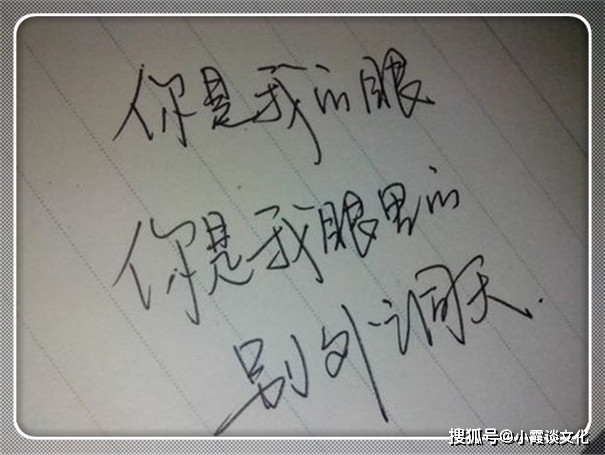 你是我的眼
你是我眼里的
别外一洞天.
搜狐号@小霞谈文化